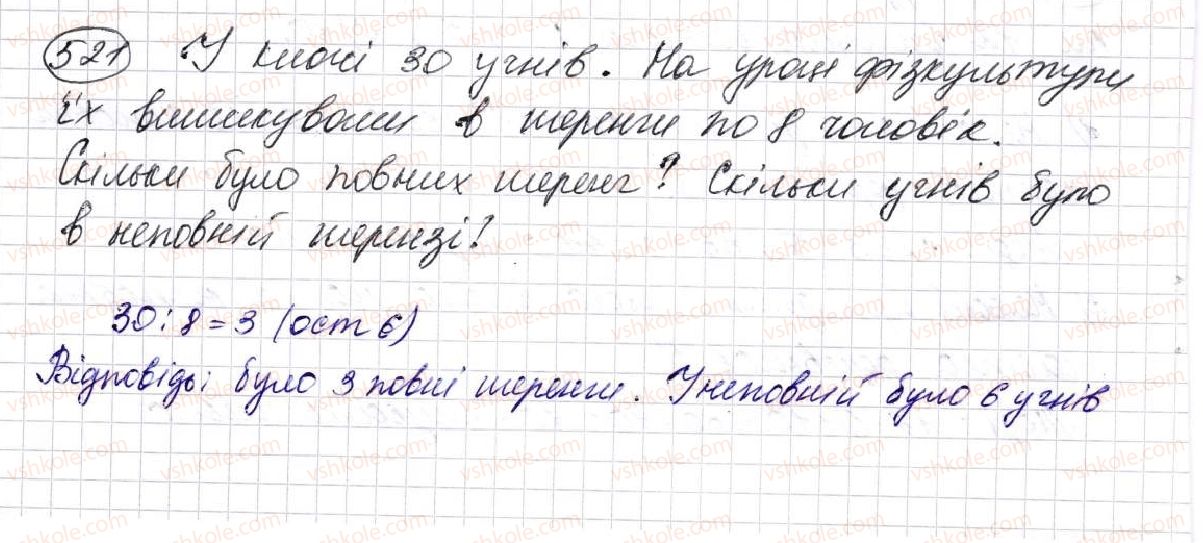 521 У класі 30 учнів. На уроці фізкультури
їх вишикували в шеренги по 8 чоловік.
Скільки було повних шеренг? Скільки учнів було
в неповній шерензі?
30 : 8 = 3 (ост 6)
Відповідь: було 3 повні шеренги. У неповній було 6 учнів